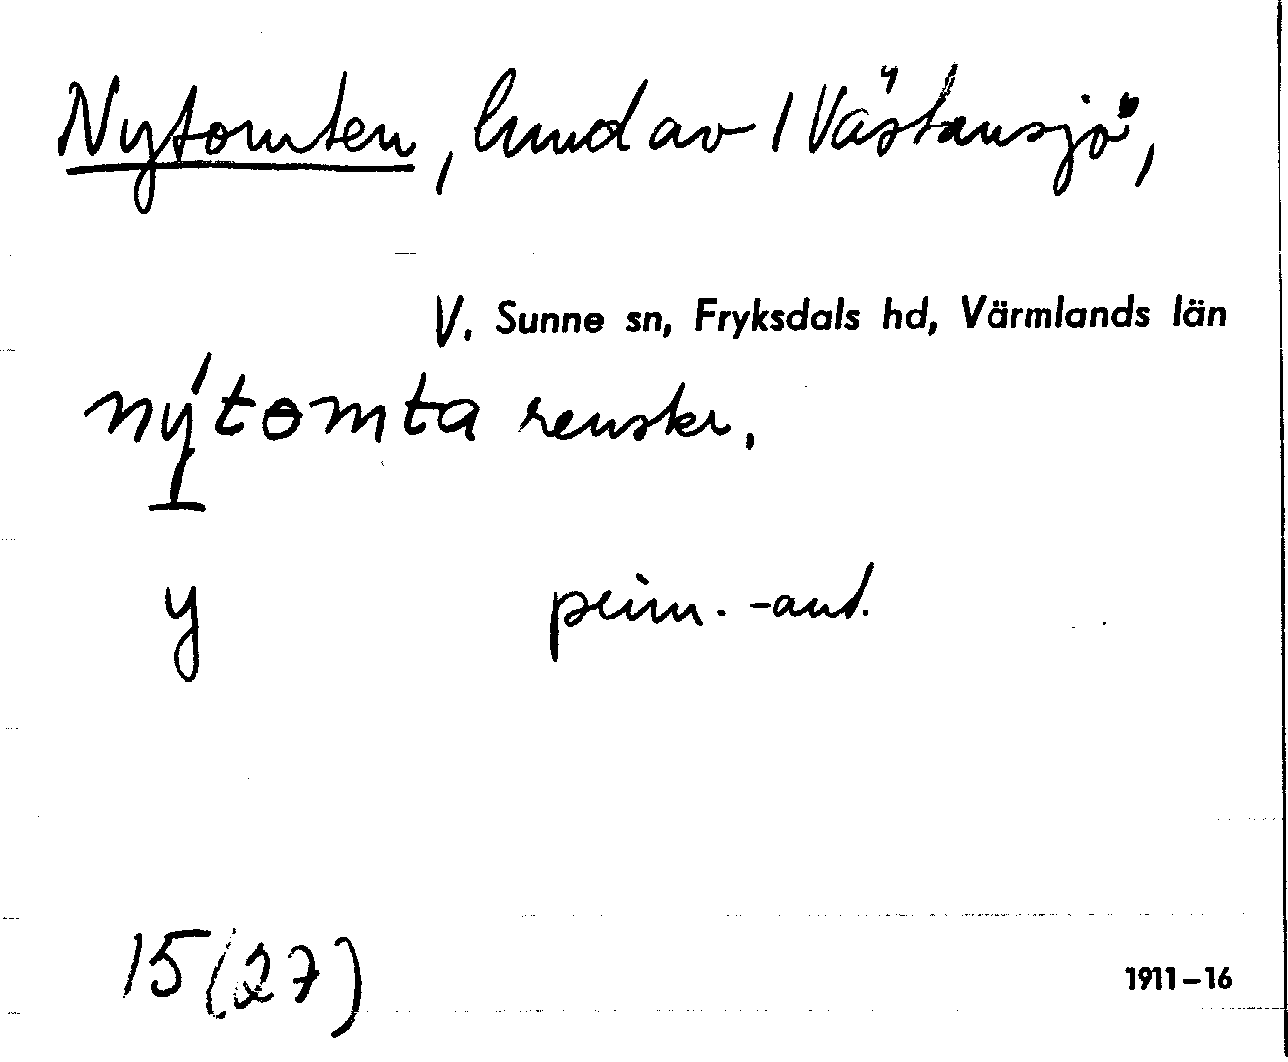 Nytomten, hmd av 1 Västansjö,
V. Sunne sn, Fryksdals hd, Värmlands län
nýtomta renskr.
y
15(27)
1911–16